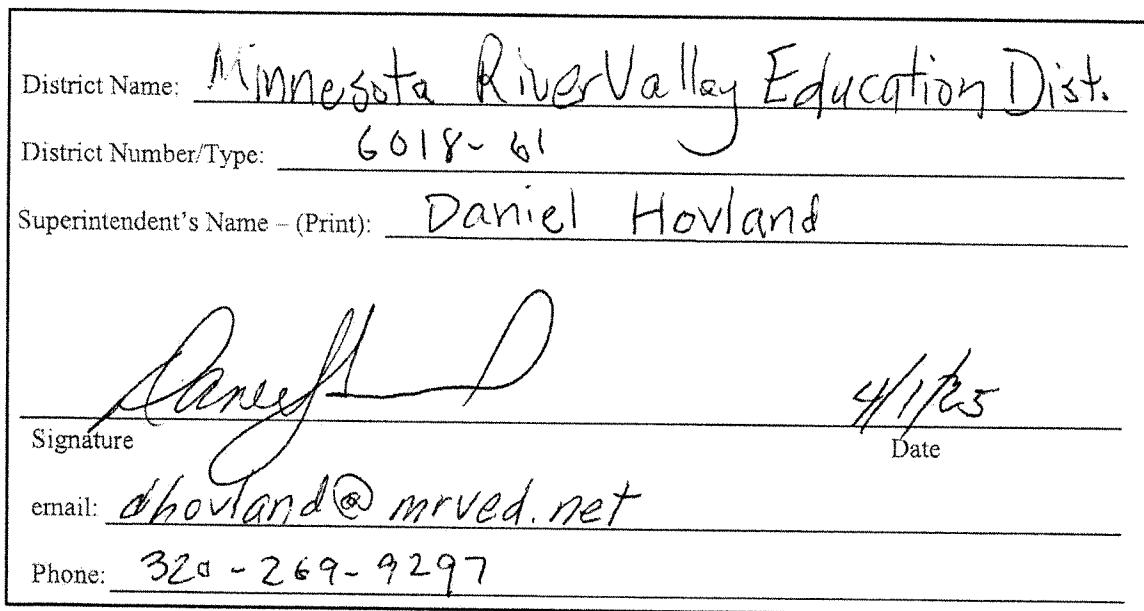 District Name: Minnesota River Valley Education Dist.
District Number/Type: 6018-61
Superintendent's Name – (Print): Daniel Hovland
4/1/25
Signature Date
email: dhovland@mrved.net
Phone: 320-269-9297